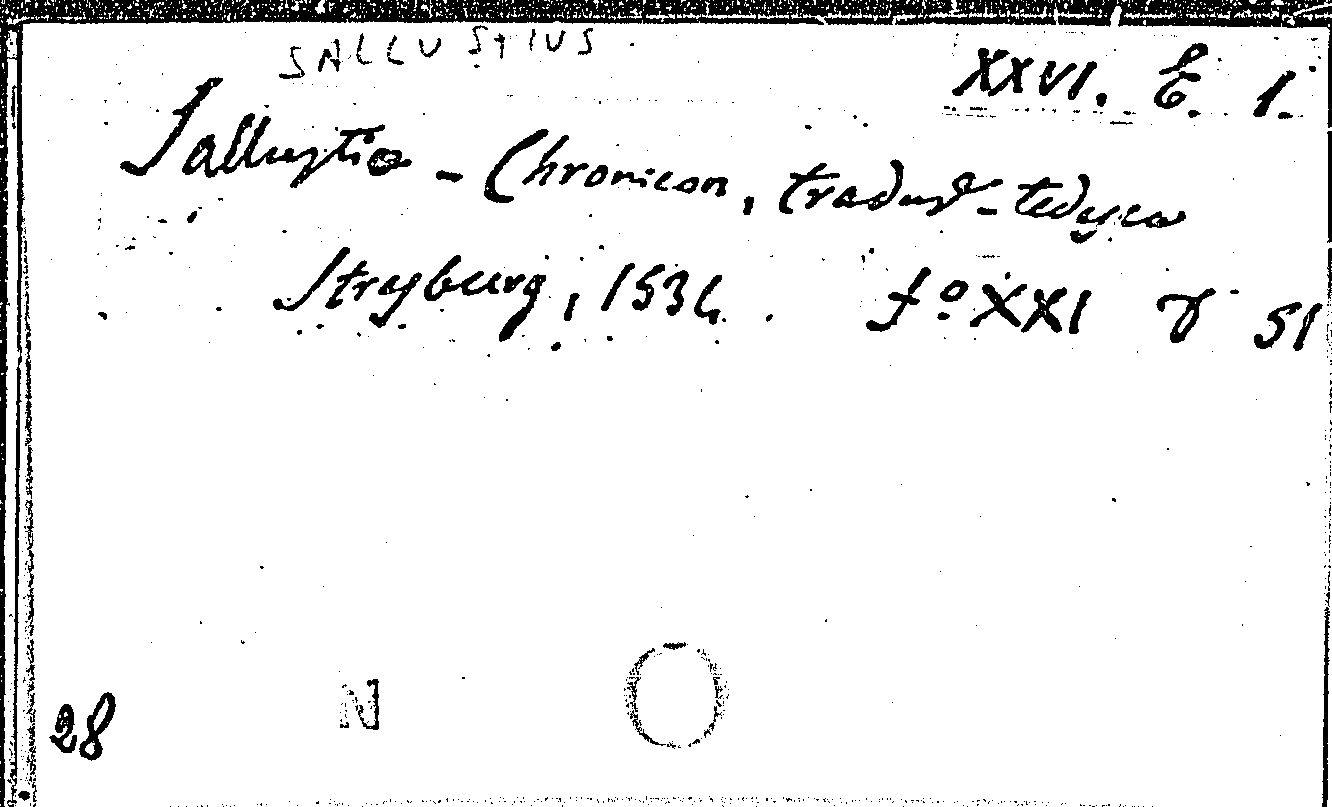 SALLUSTIUS
XXVI. E. 1.
Sallustio - Chronicon, traduz. tedesca
Strasburg, 1534. fº XXI 51
28 N